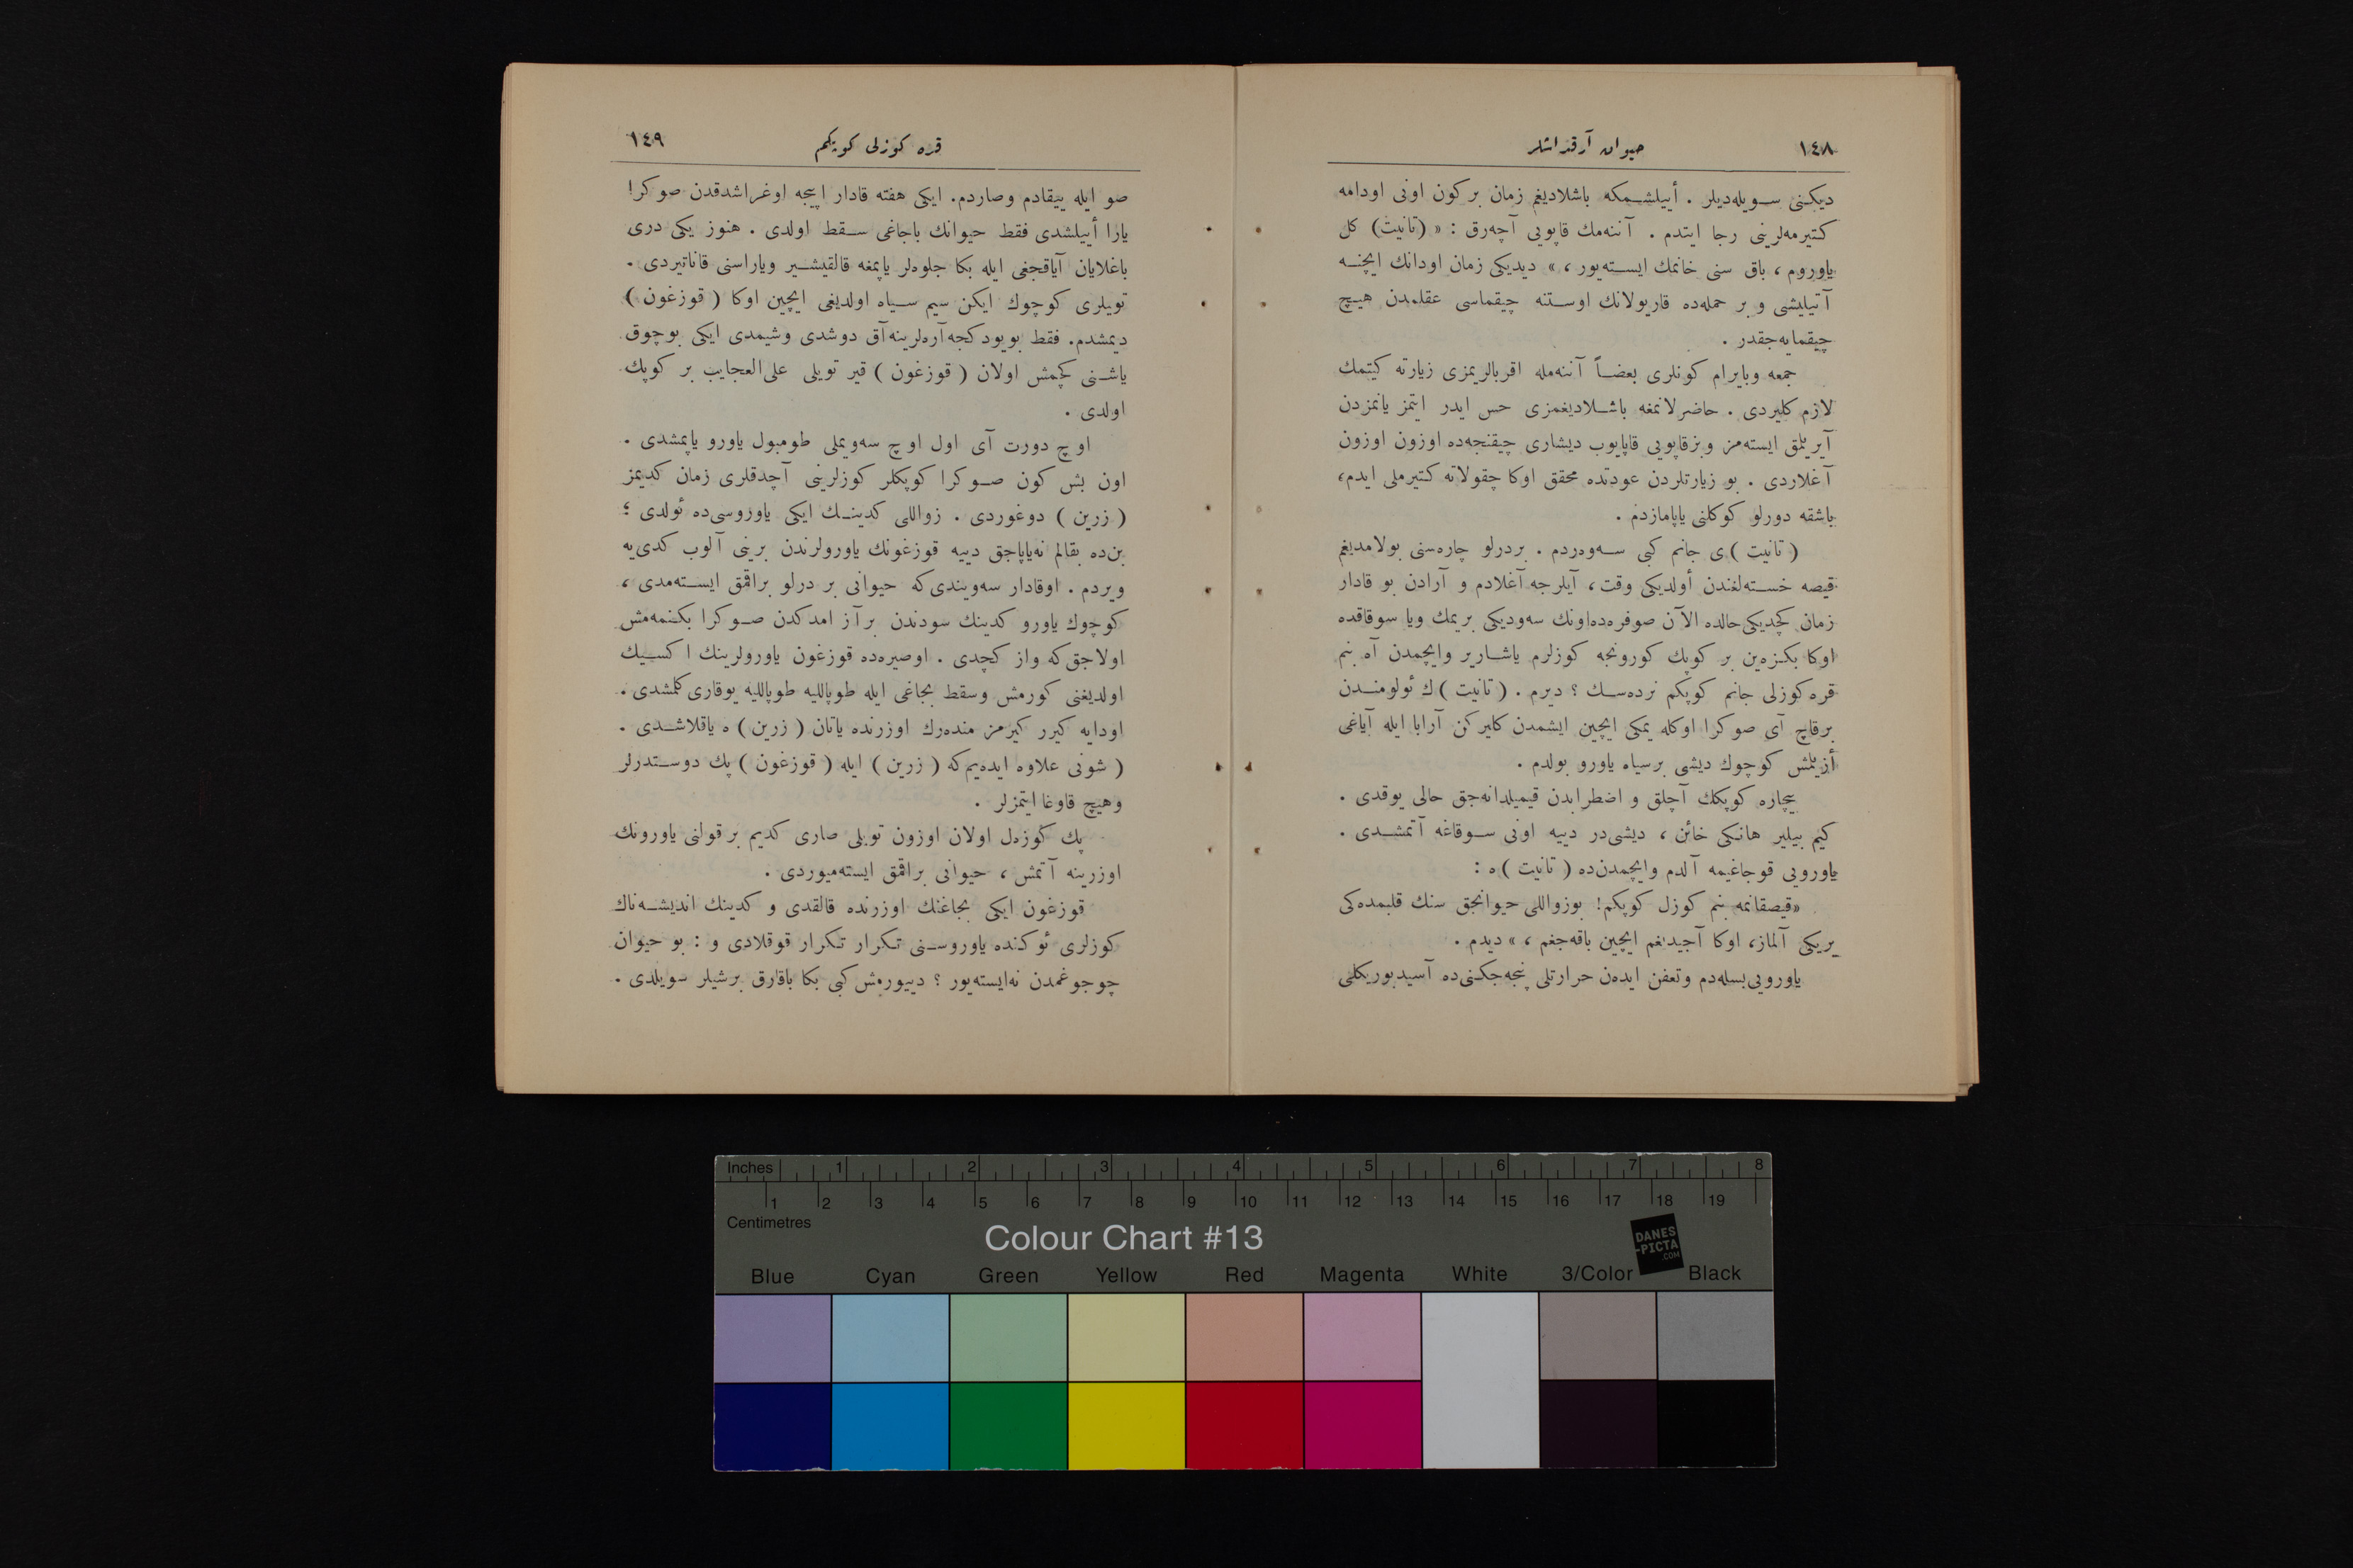 ١٤٨
حیوان آرقداشلر
دیکنی سویله‌دیلر . أییلشمکه باشلادیغم زمان بر کون اونی اودامه
کتیرمه‌لرینی رجا ایتدم . آننه‌مك قاپویی آچه‌رق : « (تانیت) کل
یاوروم ، باق سنی خانمك ایسته‌یور ، » دیدیکی زمان اودانك ایچنه
آتیلیشی و بر حمله‌ده قاریولانك اوستنه چیقماسی عقلمدن هیچ
چیقمایه‌جقدر .
جمعه وبایرام کونلری بعضاً آننه‌مله اقربالریمزی زیارته کیتمك
لازم کلیردی . حاضرلانمغه باشلادیغمزی حس ایدر ایتمز یانمزدن
آیریلمق ایسته‌مز وبزقاپویی قاپایوب دیشاری چیقنجه‌ده اوزون اوزون
آغلاردی . بو زیارتلردن عودتده محقق اوکا چقولاته کتیرملی ایدم،
باشقه دورلو کوکلنی یاپامازدم .
( تانیت )ی جانم کبی سه‌وه‌ردم . بردرلو چاره‌سنی بولامدیغم
قیصه خسته‌لغندن أولدیکی وقت ، آیلرجه آغلادم و آرادن بو قادار
زمان کچدیکی حالده الآن صوفره‌ده‌اونك سه‌ودیکی بریمك ویا سوقاقده
اوکا بکزه‌ین بر کوپك کورونجه کوزلرم یاشاریر وایچمدن آه بنم
قره کوزلی جانم کوپکم نرده‌سك ؟ دیرم . ( تانیت )ك ئولومندن
برقاچ آی صوکرا اوکله یمکی ایچین ایشمدن کلیرکن آرابا ایله آیاغی
أزیلمش کوچوك دیشی برسیاه یاورو بولدم .
بیچاره کوپکك آچلق و اضطرابدن قیمیلدانه‌جق حالی یوقدی .
کیم بیلیر هانکی خائن ، دیشی‌در دییه اونی سوقاغه آتمشدی .
یاورویی قوجاغیمه آلدم وایچمدن‌ده ( تانیت )ه :
«قیصقانمه بنم کوزل کوپکم! بوزواللی حیوانجق سنك قلبمده‌کی
یریکی آلماز، اوکا آجیدیغم ایچین باقه‌جغم ، » دیدم .
یاورویی‌بسله‌دم وتعفن ایده‌ن حرارتلی پنجه‌جکنی‌ده آسیدبوریکلی
١٤٩
قره کوزلی کوپکم
صو ایله ییقادم وصاردم. ایکی هفته قادار اییجه اوغراشدقدن صوکرا
یارا أییلشدی فقط حیوانك باجاغی سقط اولدی . هنوز یکی دری
باغلایان آیاقجغی ایله بکا جلوه‌لر یاپمغه قالقیشیر ویاراسنی قاناتیردی .
تویلری کوچوك ایکن سیم سیاه اولدیغی ایچین اوکا ( قوزغون )
دیمشدم. فقط بویودکجه آره‌لرینه‌آق دوشدی وشیمدی ایکی بوچوق
یاشنی کچمش اولان ( قوزغون ) قیر تویلی علی‌العجایب بر کوپك
اولدی .
اوچ دورت آی اول اوچ سه‌ویملی طومبول یاورو یاپمشدی .
اون بش کون صوکرا کوپکلر کوزلرینی آچدقلری زمان کدیمز
( زرین ) دوغوردی . زواللی کدینك ایکی یاوروسی‌ده ئولدی ؛
بن‌ده بقالم نه‌یاپاجق دییه قوزغونك یاورولرندن برینی آلوب کدی‌یه
ویردم . اوقادار سه‌ویندی که حیوانی بر درلو براقمق ایسته‌مدی ،
کوچوك یاورو کدینك سودندن بر آز امدکدن صوکرا بکنمه‌مش
اولاجق که واز کچدی . اوصیره‌ده قوزغون یاورولرینك اکسیك
اولدیغنی کورمش وسقط بجاغی ایله طوپاللیه طوپاللیه یوقاری کلمشدی .
اودایه کیرر کیرمز منده‌رك اوزرنده یاتان ( زرین ) ه یاقلاشدی .
( شونی علاوه ایده‌یم که ( زرین ) ایله ( قوزغون ) پك دوستدرلر
وهیچ قاوغا ایتمزلر .
پك کوزه‌ل اولان اوزون تویلی صاری کدیم برقولنی یاورونك
اوزرینه آتمش ، حیوانی براقمق ایسته‌میوردی .
قوزغون ایکی بجاغنك اوزرنده قالقدی و کدینك اندیشه‌ناك
کوزلری ئوکنده یاوروسنی تکرار تکرار قوقلادی و : بو حیوان
چوجوغمدن نه‌ایسته‌یور ؟ دییورمش کبی بکا باقارق برشیلر سویلدی .
Inches 1 2 3 4 5 6 7 8
1 2 3 4 5 6 7 8 9 10 11 12 13 14 15 16 17 18 19
Centimetres
Colour Chart #13
DANES
-PICTA
.COM
Blue Cyan Green Yellow Red Magenta White 3/Color Black